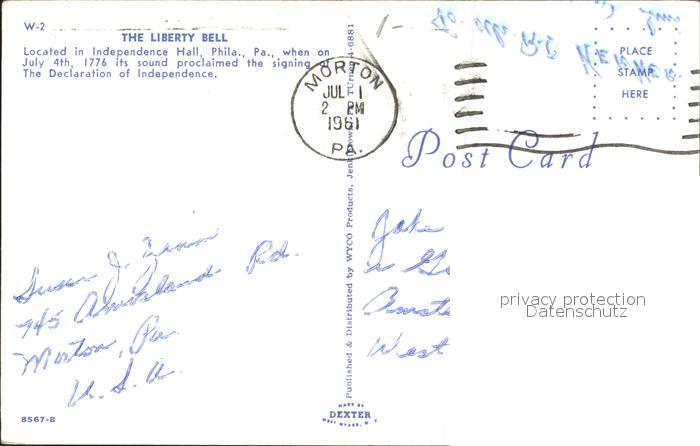 W-2
THE LIBERTY BELL
Located in Independence Hall, Phila., Pa., when on
July 4th, 1776 its sound proclaimed the signing of
The Declaration of Independence.
MORTON
JUL 1
2 PM
1961
PA.
PLACE
STAMP
HERE
Post Card
Susan J.
745 Rd.
Morton, Pa.
U. S. A.
Published & Distributed by WYCO Products, Jenkintown
4-6881
West
privacy protection
Datenschutz
8567-B
MADE BY
DEXTER
WEST NYACK, N. Y.